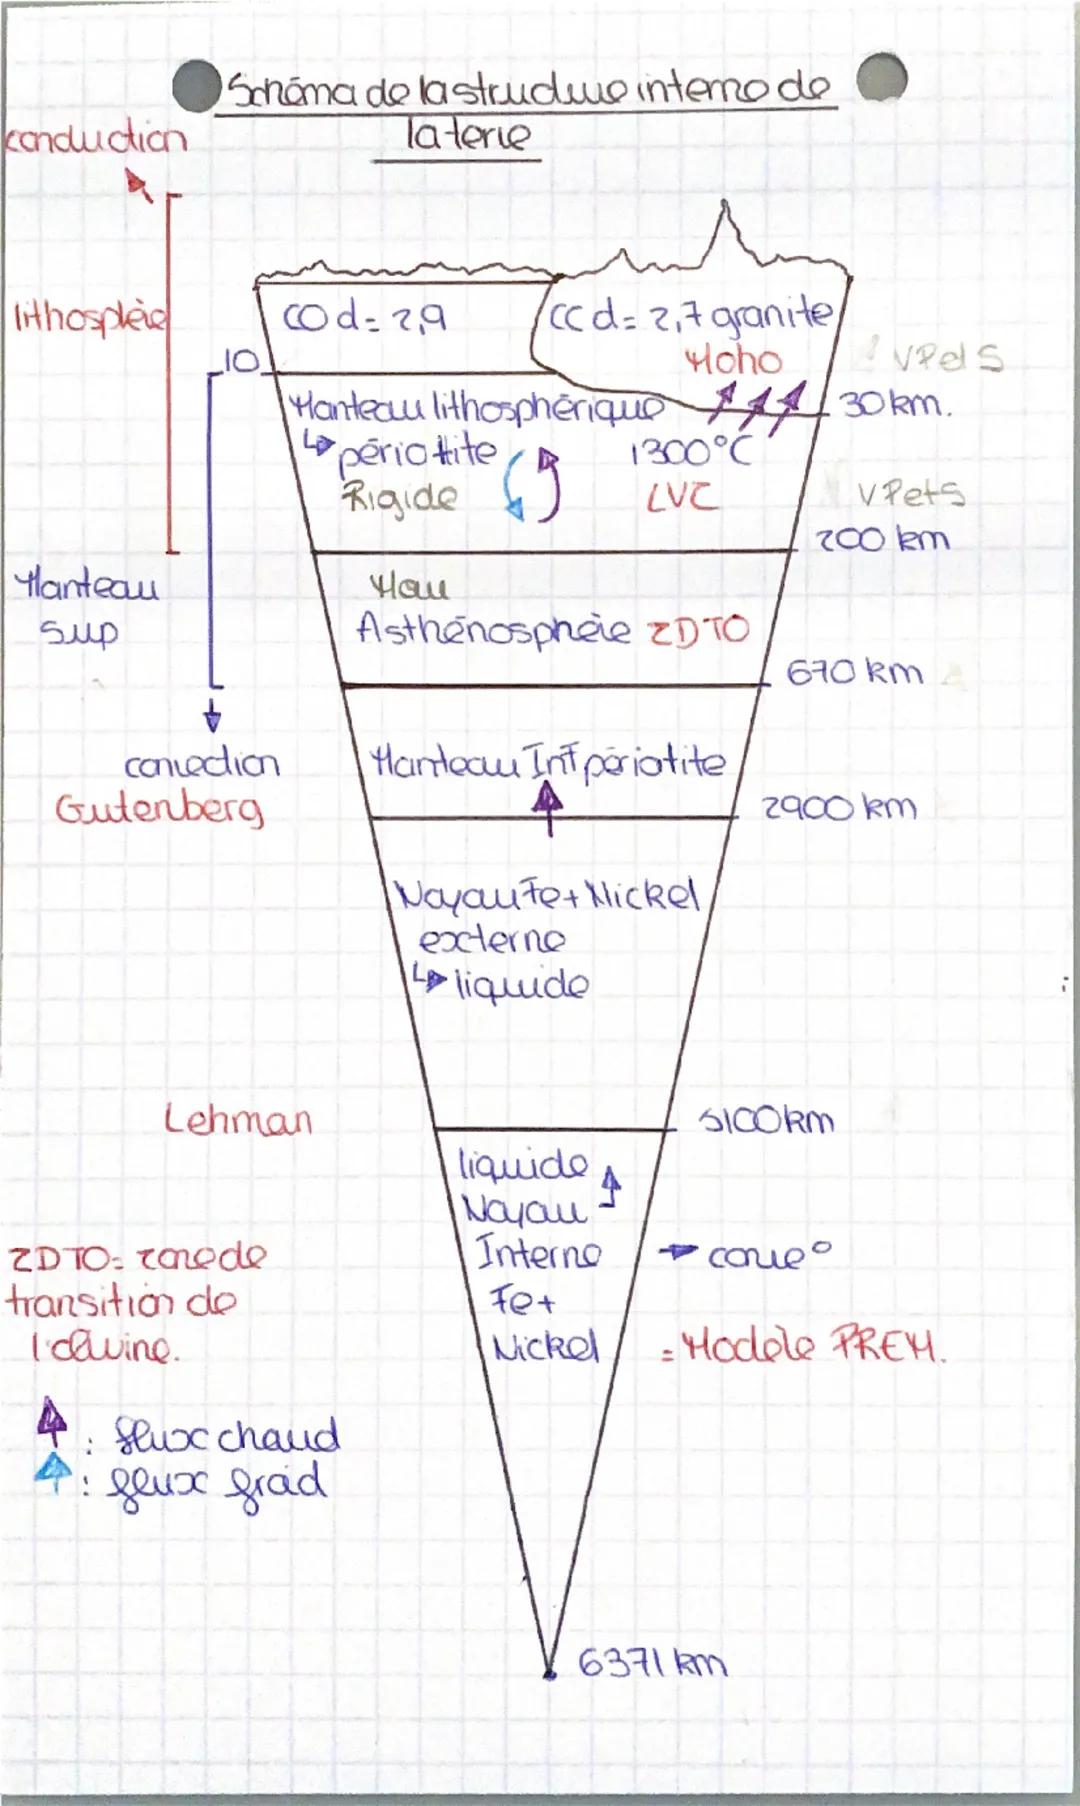 Schéma de la structure interne de
la terre
conduction
lithosphère
CO d= 2,9
CC d= 2,7 granite
Moho
10
VPet S
30 km.
Manteau lithosphérique
↳ périotite
1300°C
Rigide
LVZ
VPetS
200 km
Manteau
sup
Mou
Asthénosphère ZDTO
670 km
convection
Manteau Inf périotite
Gutenberg
2900 km
Noyau Fe+ Nickel
externe
↳ liquide
Lehman
5100km
liquide
Noyau
Interne
→ conve°
Fe+
Nickel
= Modèle PREM.
ZDTO= zone de
transition de
l'olivine.
: flux chaud
: flux froid
6371 km